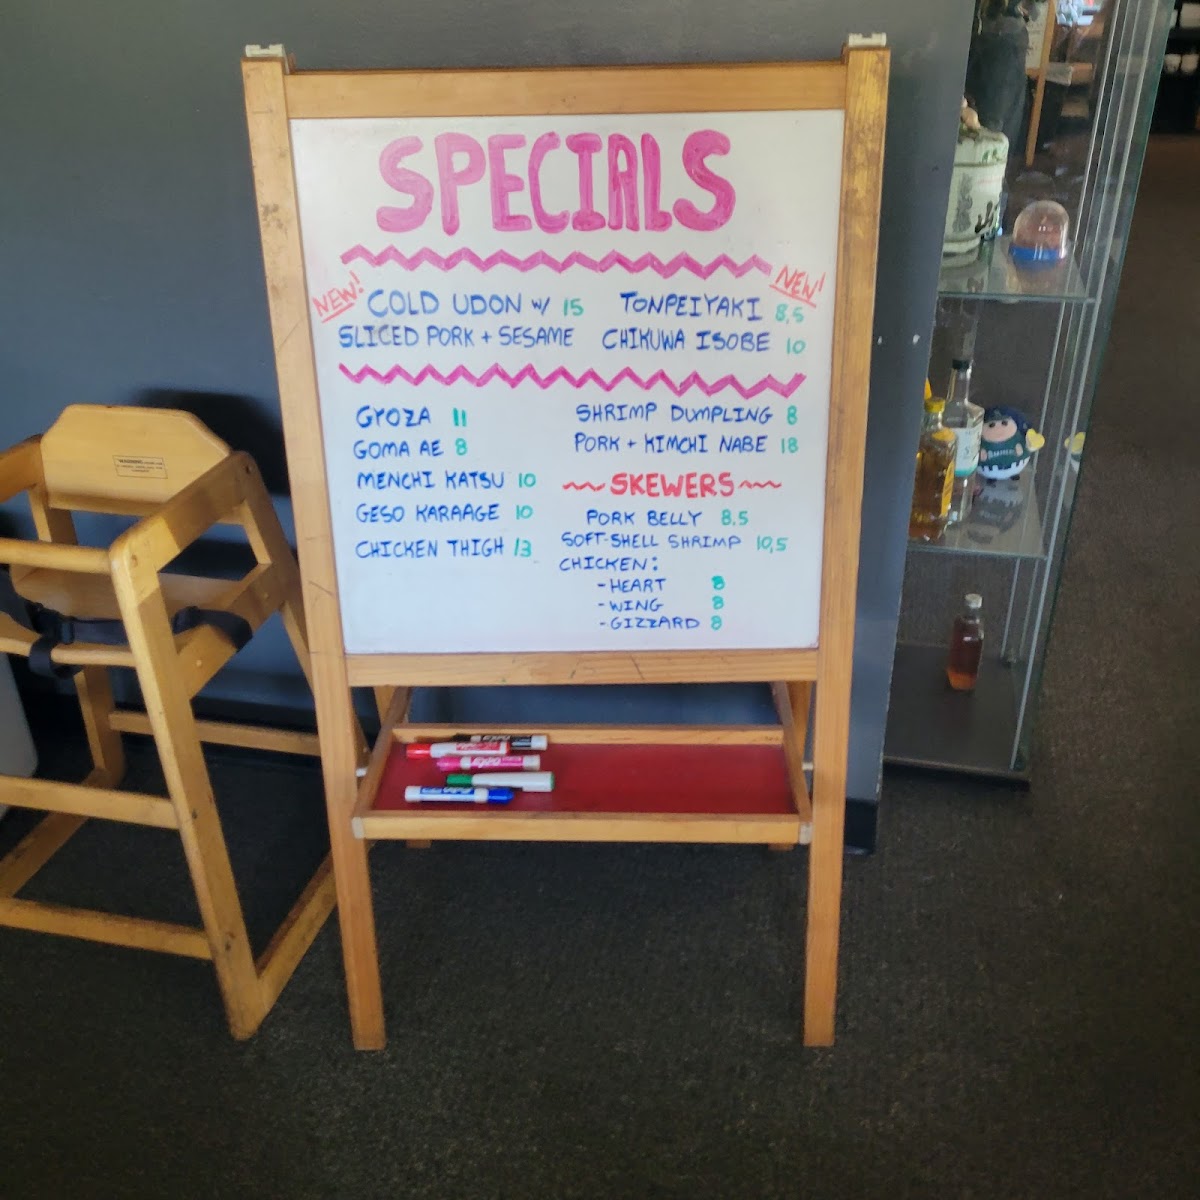 SPECIALS
NEW!
COLD UDON W/ 15
SLICED PORK + SESAME
NEW!
TONPEIYAKI 8,5
CHIKUWA ISOBE 10
GYOZA 11
GOMA AE 8
MENCHI KATSU 10
GESO KARAAGE 10
CHICKEN THIGH 13
SHRIMP DUMPLING 8
PORK + KIMCHI NABE 18
SKEWERS
PORK BELLY 8.5
SOFT-SHELL SHRIMP 10,5
CHICKEN:
- HEART 8
- WING 8
- GIZZARD 8
EXPO
WARNING